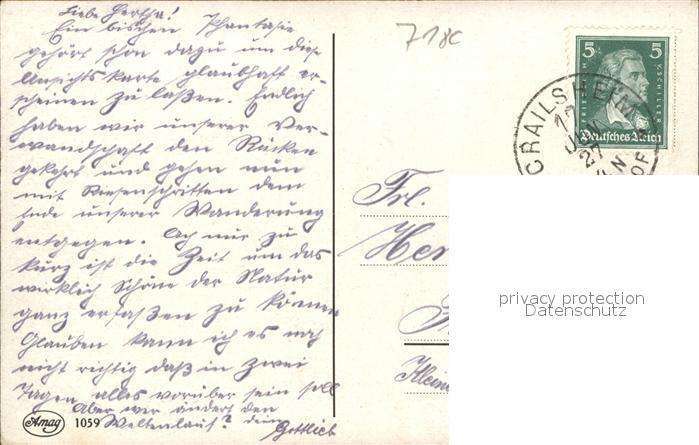 Liebe Hertha!
Ein bischen Phantasie
gehört schon dazu um diese
Ansichtskarte glaubhaft er-
scheinen zu laßen. Endlich
haben wir unserer Ver-
wandschaft den Rücken
gekehrt und gehen nun
mit Riesenschritten dem
Ende unserer Wanderung
entgegen. Ach nur zu
kurz ist die Zeit um das
wirklich Schöne der Natur
ganz erfaßen zu können
Glauben kann ich es noch
nicht richtig daß in zwei
Tagen alles vorüber sein soll
Aber wer ändert den
Weltenlauf? dein
Gottlieb
Amag 1059
718c
5 5
FRIEDRICH V. SCHILLER
Deutsches Reich
CRAILSHEIM
27
Frl.
Her
Klein
privacy protection
Datenschutz